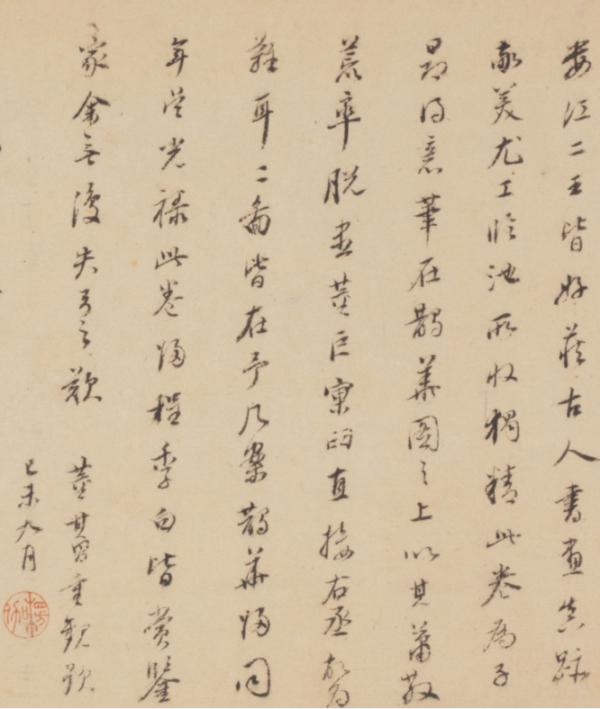 婁江二王皆好藏古人書畫真跡
敬美尤工臨池所收獨精此卷為子
昂得意筆在鵲華圖之上以其蕭散
荒率脫盡董巨窠臼直接右丞故為
難耳二圖皆在予几案鵲華歸同
年吳光祿此卷歸程季白皆賞鑒
家余無復失弓之歎 董其昌重觀題
己未九月